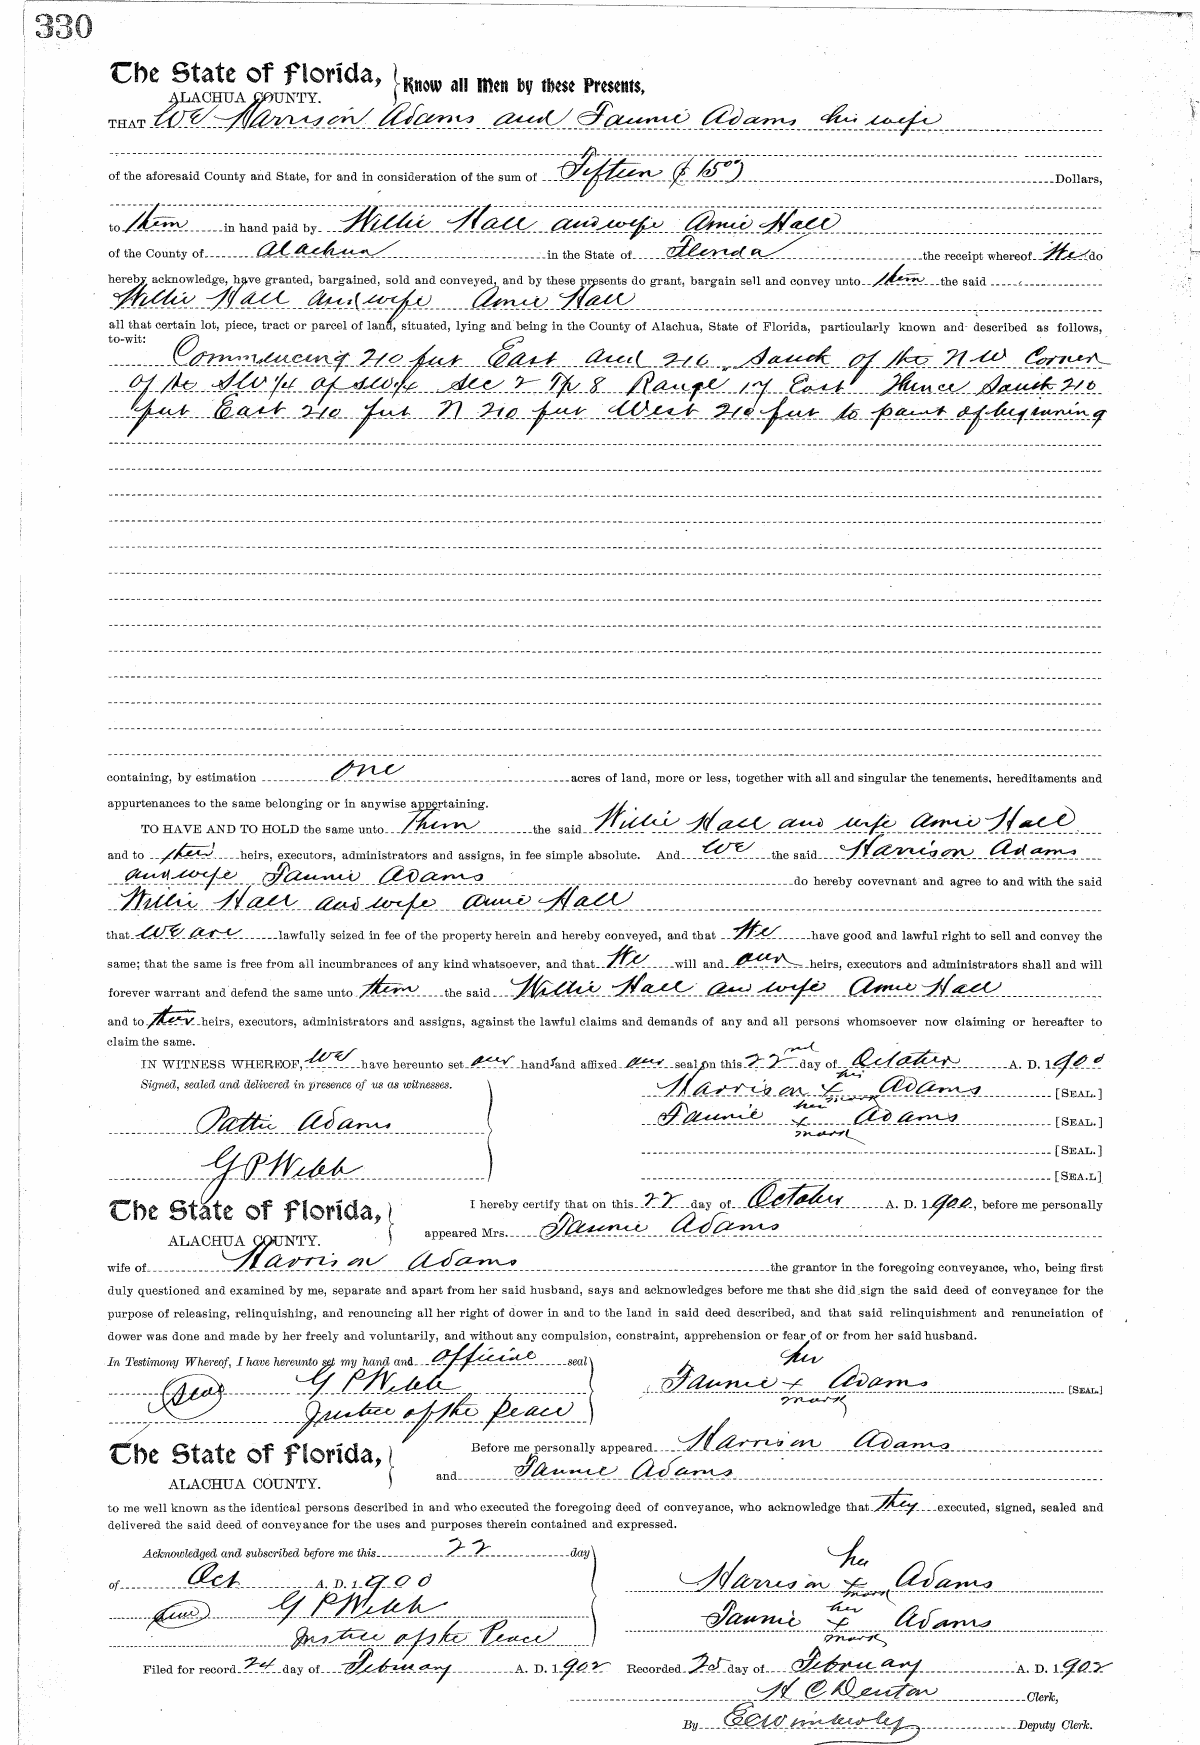 330
The State of Florida, Know all Men by these Presents,
ALACHUA COUNTY.
THAT We Harrison Adams and Fannie Adams his wife
of the aforesaid County and State, for and in consideration of the sum of Fifteen ($15.00) Dollars,
to them in hand paid by Willie Hall and wife Amie Hall
of the County of Alachua in the State of Florida the receipt whereof We do
hereby acknowledge, have granted, bargained, sold and conveyed, and by these presents do grant, bargain sell and convey unto them the said
Willie Hall and wife Amie Hall
all that certain lot, piece, tract or parcel of land, situated, lying and being in the County of Alachua, State of Florida, particularly known and described as follows,
to-wit:
Commencing 210 feet East and 210 South of the NW Corner
of the SW 1/4 of SW 1/4 Sec 2 Tp 8 Range 17 East Thence South 210
feet East 210 feet N 210 feet West 210 feet to point of beginning
containing, by estimation one acres of land, more or less, together with all and singular the tenements, hereditaments and
appurtenances to the same belonging or in anywise appertaining.
TO HAVE AND TO HOLD the same unto Them the said Willie Hall and wife Amie Hall
and to their heirs, executors, administrators and assigns, in fee simple absolute. And We the said Harrison Adams
and wife Fannie Adams do hereby covevnant and agree to and with the said
Willie Hall and wife Amie Hall
that We are lawfully seized in fee of the property herein and hereby conveyed, and that We have good and lawful right to sell and convey the
same; that the same is free from all incumbrances of any kind whatsoever, and that We will and our heirs, executors and administrators shall and will
forever warrant and defend the same unto them the said Willie Hall an wife Amie Hall
and to their heirs, executors, administrators and assigns, against the lawful claims and demands of any and all persons whomsoever now claiming or hereafter to
claim the same.
IN WITNESS WHEREOF, We have hereunto set our hands and affixed our seal on this 22nd day of October A. D. 1900
Signed, sealed and delivered in presence of us as witnesses.
Harrison his x mark Adams [SEAL.]
Pattie Adams
Fannie her x mark Adams [SEAL.]
[SEAL.]
G P Webb
[SEA.L]
The State of Florida,
ALACHUA COUNTY.
I hereby certify that on this 22 day of October A. D. 1900, before me personally
appeared Mrs. Fannie Adams
wife of Harrison Adams the grantor in the foregoing conveyance, who, being first
duly questioned and examined by me, separate and apart from her said husband, says and acknowledges before me that she did sign the said deed of conveyance for the
purpose of releasing, relinquishing, and renouncing all her right of dower in and to the land in said deed described, and that said relinquishment and renunciation of
dower was done and made by her freely and voluntarily, and without any compulsion, constraint, apprehension or fear of or from her said husband.
In Testimony Whereof, I have hereunto set my hand and official seal
(Seal) G P Webb
Justice of the Peace
Fannie her x mark Adams [SEAL.]
The State of Florida,
ALACHUA COUNTY.
Before me personally appeared Harrison Adams
and Fannie Adams
to me well known as the identical persons described in and who executed the foregoing deed of conveyance, who acknowledge that they executed, signed, sealed and
delivered the said deed of conveyance for the uses and purposes therein contained and expressed.
Acknowledged and subscribed before me this 22 day
of Oct A. D. 1900
(Seal) G P Webb
Justice of the Peace
Harrison his x mark Adams
Fannie her x mark Adams
Filed for record 24 day of February A. D. 1902 Recorded 25 day of February A. D. 1902
H C Denton Clerk,
By E C Wimberley Deputy Clerk.